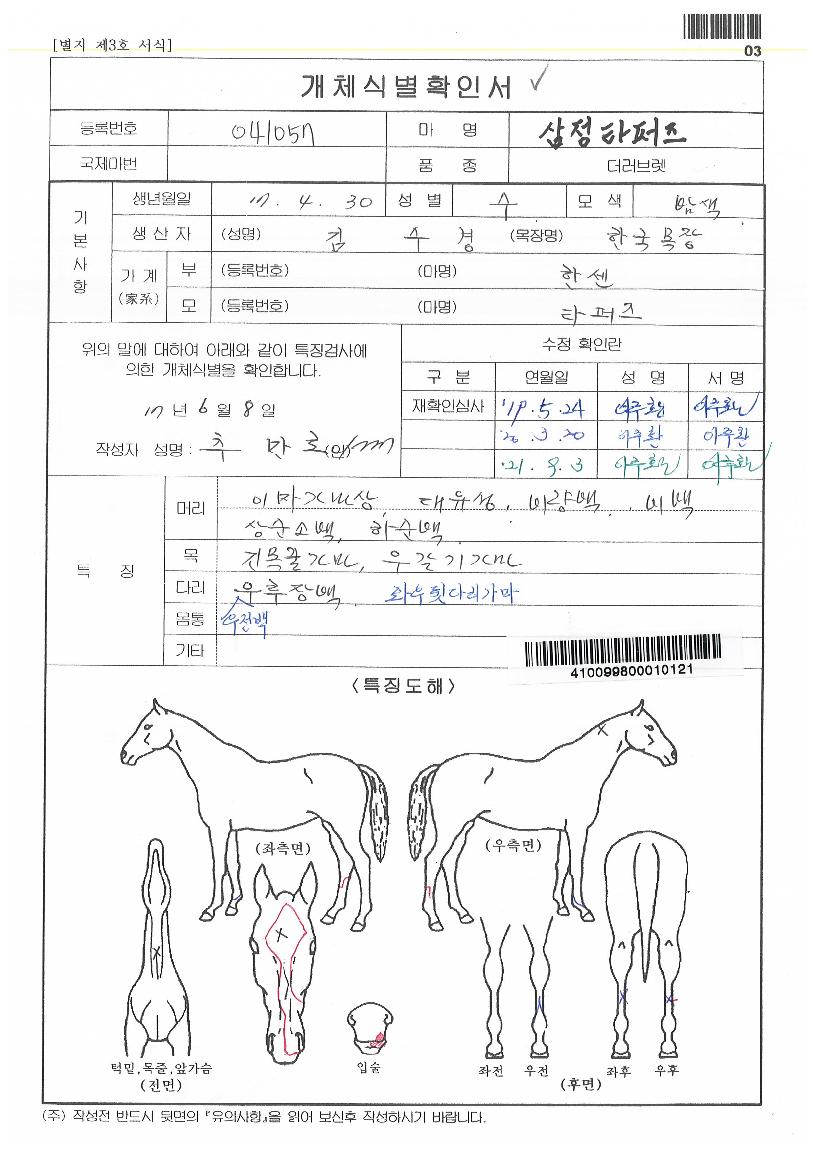 [별지 제3호 서식]
03
개체식별확인서 ✓
등록번호 041057 마 명 삼정타퍼즈
국제마번 품 종 더러브렛
기본사항 생년월일 17. 4. 30 성 별 수 모 색 밤색
생 산 자 (성명) 김 수 경 (목장명) 한국목장
가 계 (家系) 부 (등록번호) (마명) 한센
모 (등록번호) (마명) 타퍼즈
위의 말에 대하여 아래와 같이 특징검사에
의한 개체식별을 확인합니다.
17 년 6 월 8 일
작성자 성명 : 추 만 호 (인)
수정 확인란
구 분 연월일 성 명 서 명
재확인심사 '19. 5. 24 이주환 이주환
'20. 3. 20 이주환 이주환
'21. 9. 3 이주환 이주환
특 징
머리 이마가마상, 대유성, 비량백, 비백
상순소백, 하순백
목 진목줄가마, 우갈기가마
다리 우후장백 좌우뒷다리가마
우전백
몸통
기타
410099800010121
<특징도해>
(좌측면)
(우측면)
턱밑,목줄,앞가슴
(전면)
입술
좌전 우전
좌후 우후
(후면)
(주) 작성전 반드시 뒷면의 『유의사항』을 읽어 보신후 작성하시기 바랍니다.